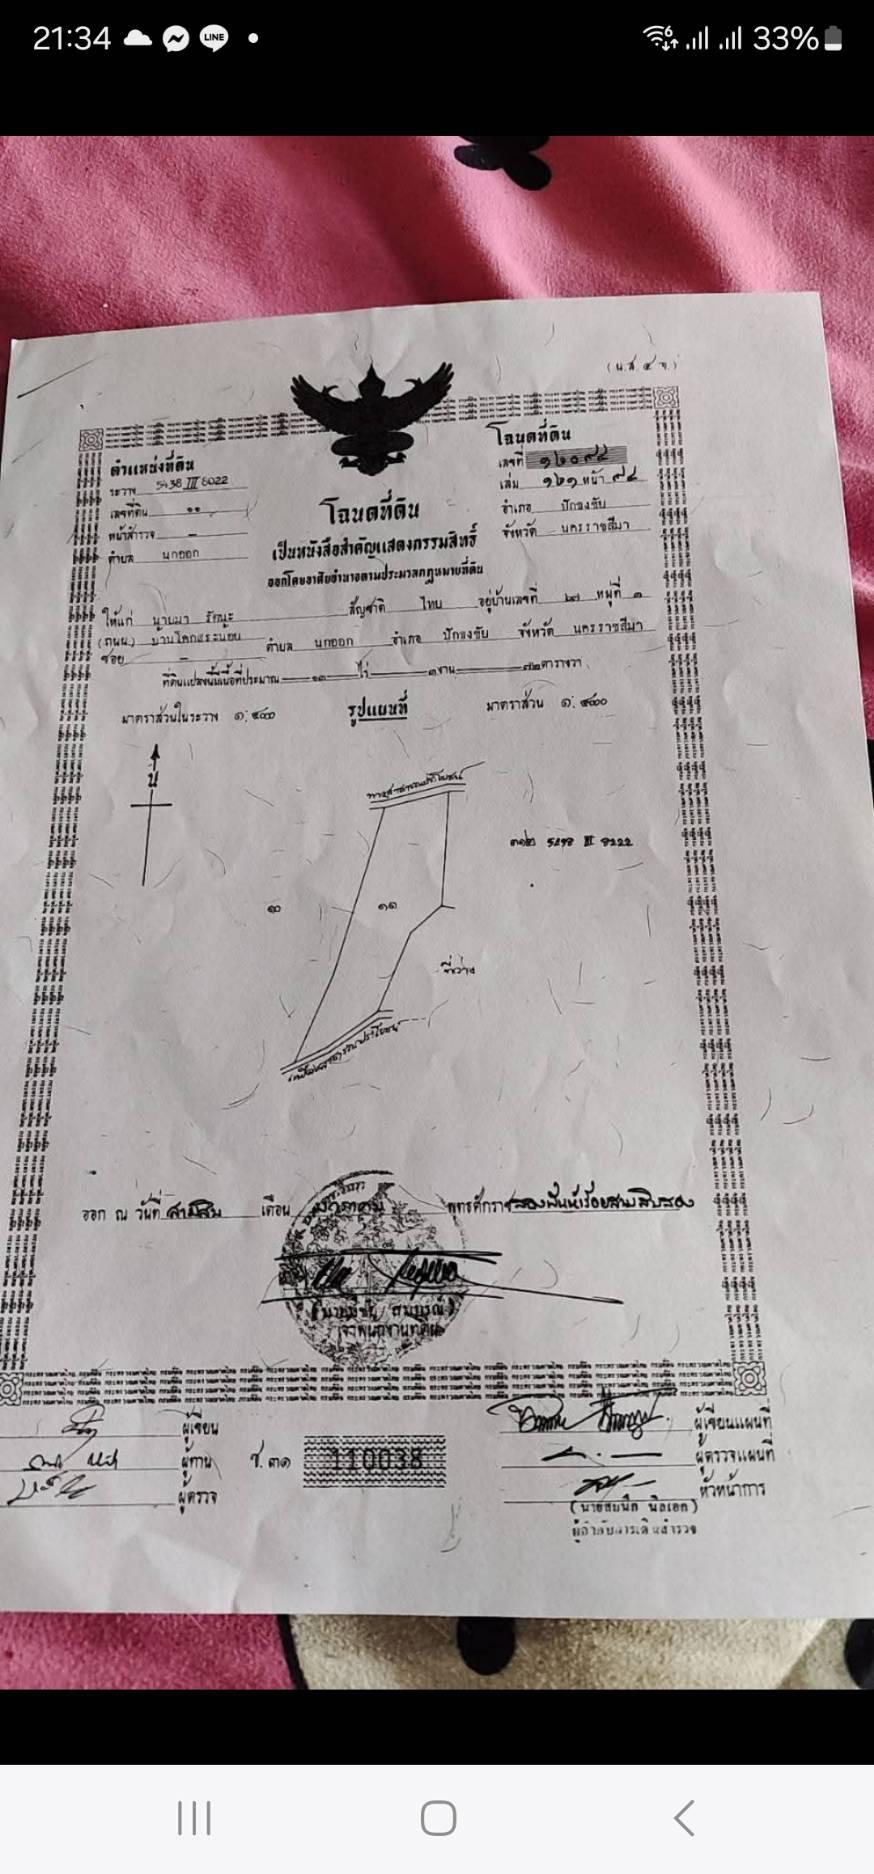 21:34 LINE 33%
(น.ส. ๔ จ.)
ตำแหน่งที่ดิน
ระวาง 5438 III 8022
เลขที่ดิน ๑๑
หน้าสำรวจ -
ตำบล นกออก
โฉนดที่ดิน
เลขที่ ๑๖๐๙๔
เล่ม ๑๖๑ หน้า ๙๔
อำเภอ ปักธงชัย
จังหวัด นครราชสีมา
โฉนดที่ดิน
เป็นหนังสือสำคัญแสดงกรรมสิทธิ์
ออกโดยอาศัยอำนาจตามประมวลกฎหมายที่ดิน
ให้แก่ นายมา สัญชาติ ไทย อยู่บ้านเลขที่ ๒๗ หมู่ที่ ๑
(ถนน) บ้านโคกสระน้อย ตำบล นกออก อำเภอ ปักธงชัย จังหวัด นครราชสีมา
ซอย -
ที่ดินแปลงนี้มีเนื้อที่ประมาณ ๑๓ ไร่ ๑ งาน ๗๒ ตารางวา
มาตราส่วนในระวาง ๑:๔๐๐๐ รูปแผนที่ มาตราส่วน ๑:๔๐๐๐
น
ทางสาธารณประโยชน์
๓๑๒ 5438 III 8222
๑๐ ๑๑
ที่ว่าง
สาธารณประโยชน์
ออก ณ วันที่ สามสิบ เดือน มกราคม พุทธศักราช สองพันห้าร้อยสามสิบสอง
เจ้าพนักงานที่ดิน
ผู้เขียน
ผู้ทาน
ผู้ตรวจ
ช.๓๑ 110038
ผู้เขียนแผนที่
ผู้ตรวจแผนที่
หัวหน้าการ
(นายสมนึก นิลเอก)
ผู้กำกับการเดินสำรวจ